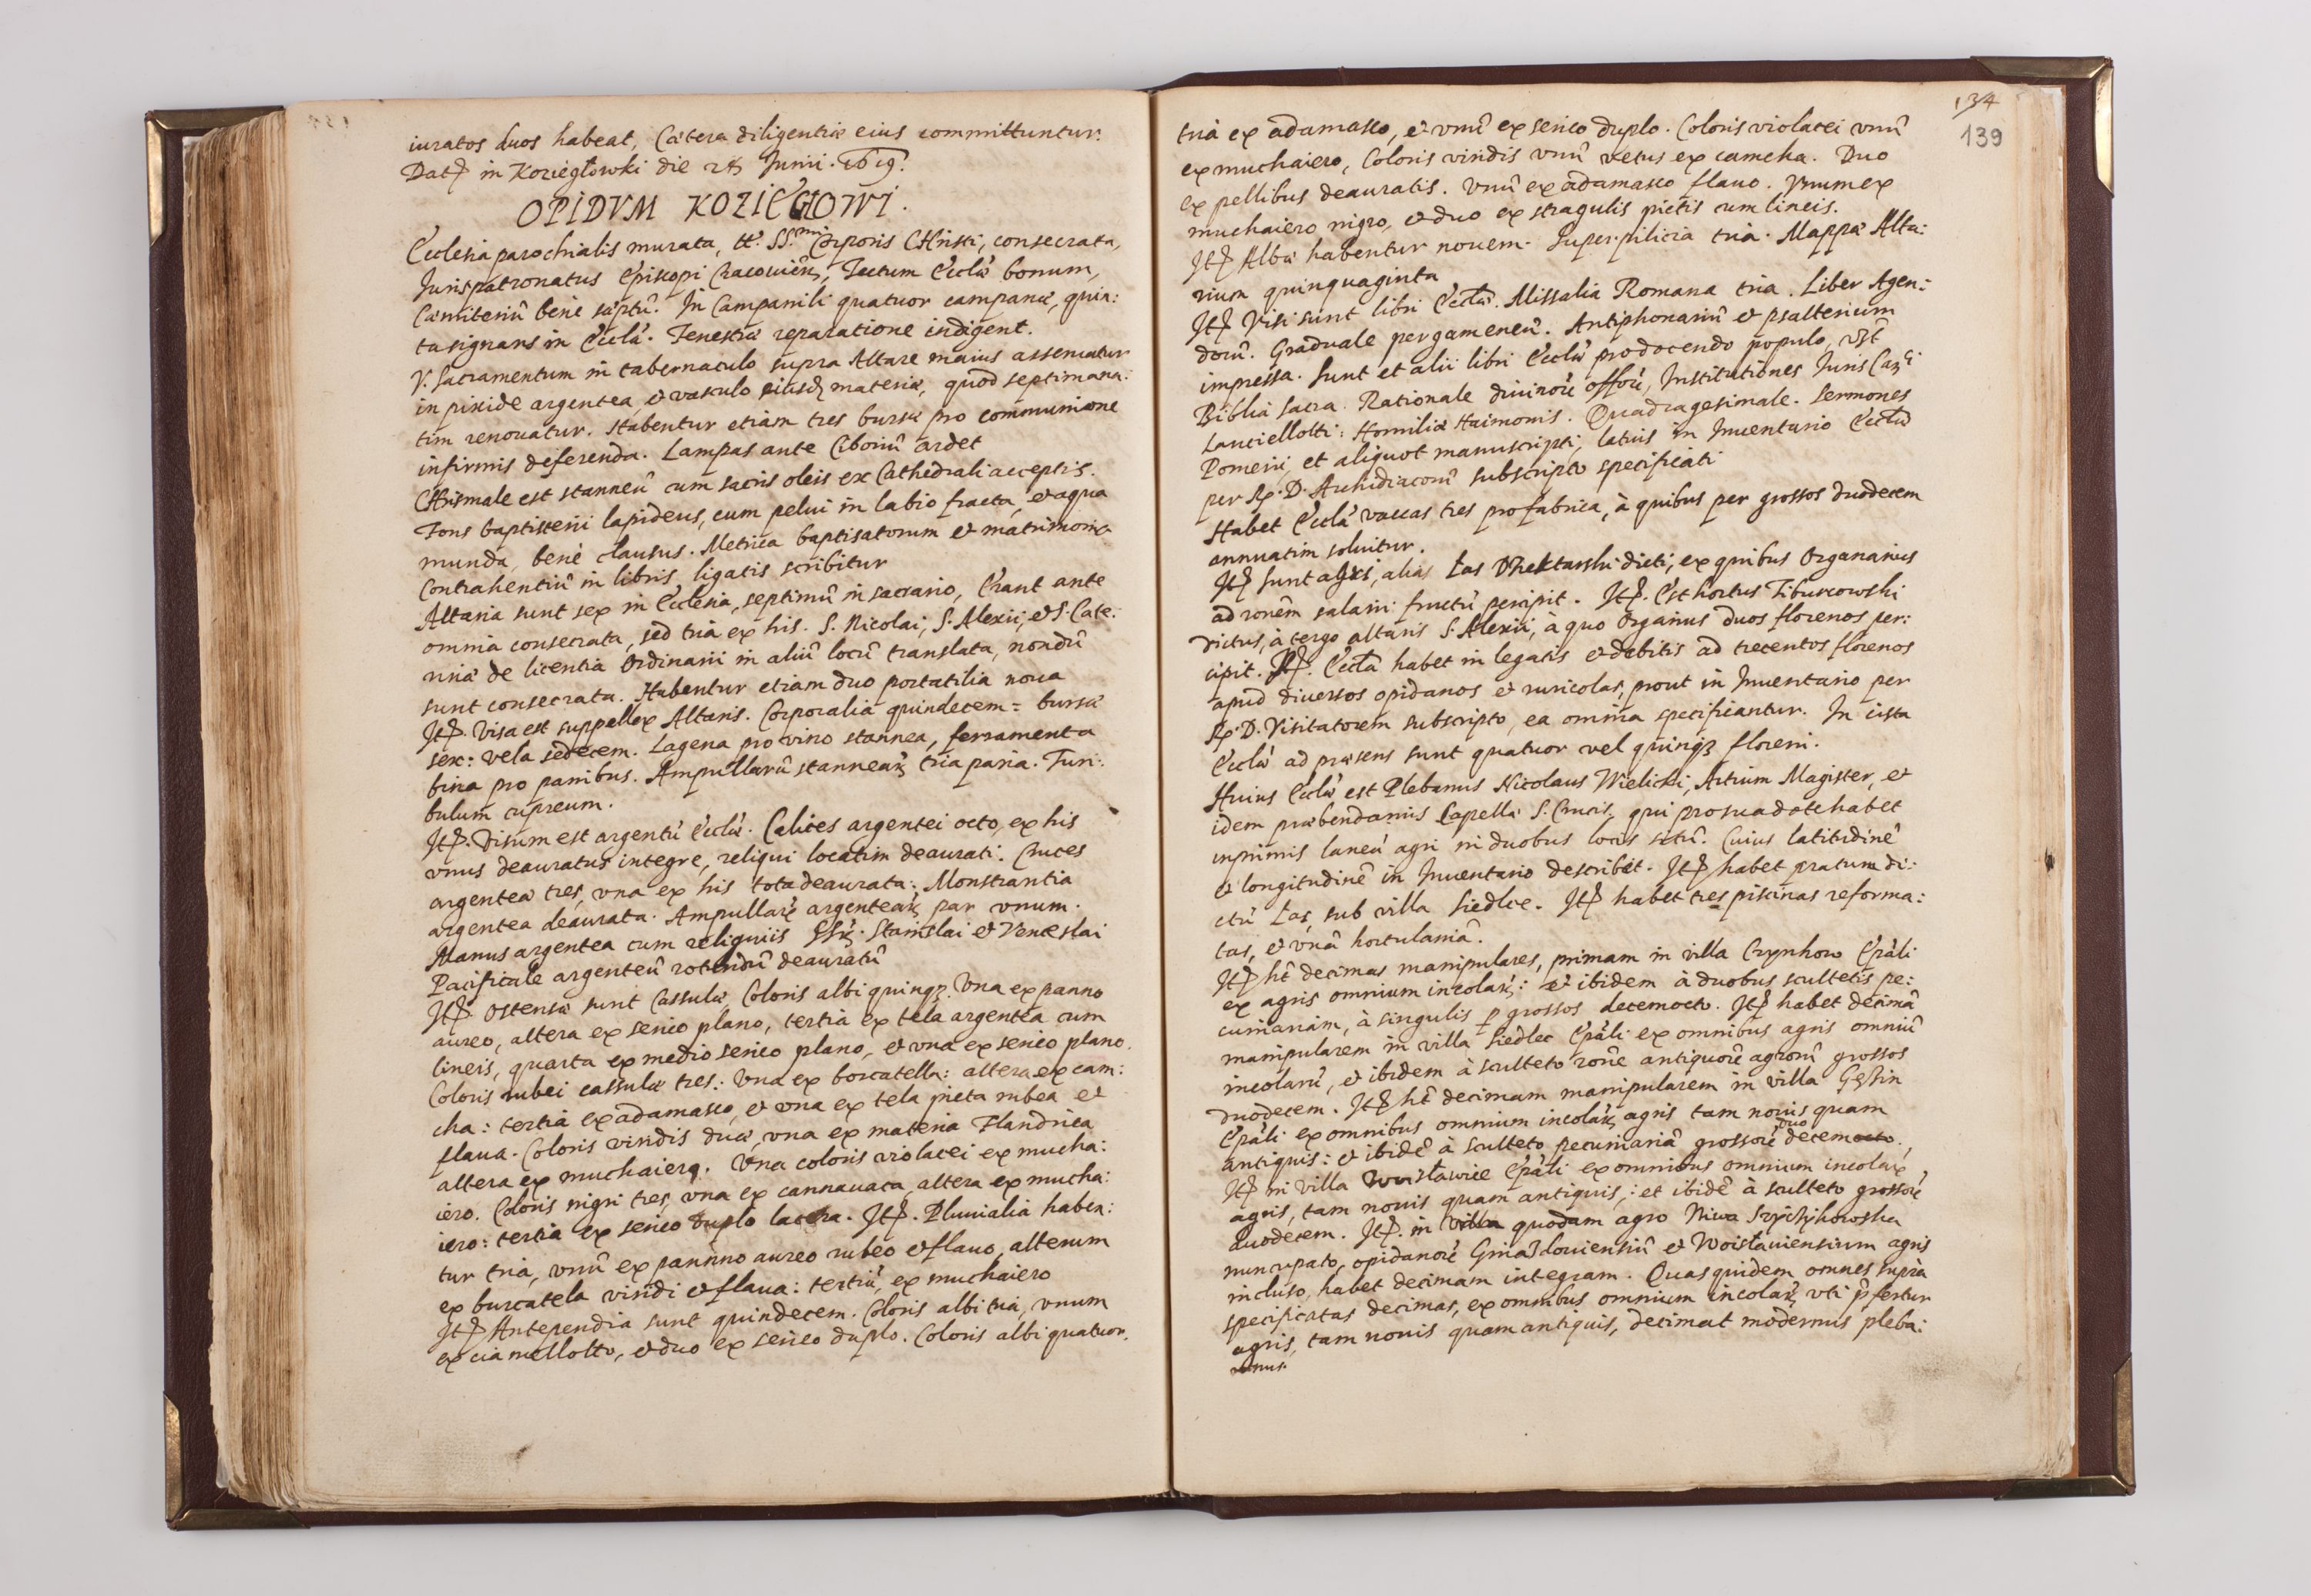 iuratos duos habeat, Cætera diligentiæ eius committuntur.
in Koziegłowki die Junii. 1619.
OPIDVM KOZIEGŁOWI.
Ecclesia parochialis murata, tt. SS.mi Corporis Christi, consecrata,
Jurispatronatus Episcopi Cracouień, Tectum Eccłæ bonum,
Cæmiteriũ benè sæptũ. In Campanili quatuor campanæ, quin:
ta signans in Eccłá. Fenestræ reparatione indigent.
V. Sacramentum in tabernaculo supra Altare maius asseruatur
in pixide argentea, et vasculo materiæ, quod septimana:
tim renouatur. Habentur etiam tres bursæ pro communione
infirmis deferenda. Lampas ante Ciboriũ ardet
Chrismale est stanneũ cum sacris oleis ex Cathedrali acceptis.
Fons baptisterii lapideus, cum pelui in labio fracta, et aqua
munda, benè clausus. Metrica baptisatorum et matrimonia
Contrahentiũ in libris ligatis scribitur
Altaria sunt sex in Ecclesia, septimũ in sacrario, Erant ante
omnia consecrata, sed tria ex his. S. Nicolai, S. Alexii, et S. Cate:
rinæ de licentia Ordinarii in aliũ locũ translata, nondũ
sunt consecrata. Habentur etiam duo portatilia noua
Itē. Visa est suppellex Altaris. Corporalia quindecem: bursæ
sex: vela sedecem. Lagena pro vino stannea, ferramenta
bina pro panibus. Ampullarũ stannearꝝ tria paria. Turi:
bulum cupreum.
Itē. Visum est argentũ Eccłæ. Calices argentei octo, ex his
vnus deauratus integre, reliqui locatim deaurati. Cruces
argenteæ tres, vna ex his tota deaurata. Monstrantia
argentea deaurata. Ampullarꝝ argentearꝝ par vnum.
Manus argentea cum reliquiis SSrꝝ. Stanislai et Venceslai
Pacificale argenteũ rotundũ deauratũ
Itē. Ostensæ sunt Cassulæ, Coloris albi quinqꝫ. Vna ex panno
aureo, altera ex serico plano, tertia ex tela argentea cum
lineis, quarta ex medio serico plano, et vna ex serico plano.
Coloris rubei cassulæ tres: Vna ex borcatella: altera ex cam:
cha: tertia ex adamasco, et vna ex tela picta rubea et
flaua. Coloris viridis duæ, vna ex materia Flandrica
altera ex muchaiero. Vna coloris violacei ex mucha:
iero. Coloris nigri tres, vna ex cannauata, altera ex mucha:
iero: tertia ex serico duplo lacera. Itē. Pluuialia haben:
tur tria, vnũ ex pannno aureo rubeo et flauo, alterum
ex burcatela viridi et flaua: tertiũ, ex muchaiero
Itē Antependia sunt quindecem. Coloris albi tria, vnum
ex ciamellotto, et duo ex serico duplo. Coloris albi quatuor,
134
139
tria ex adamasco, et vnũ ex serico duplo. Coloris violacei vnũ
ex muchaiero, Coloris viridis vnũ vetus ex camcha. Duo
ex pellibus deauratis. Vnũ ex adamasco flauo. Vnum ex
muchaiero nigro, et duo ex stragulis pictis cum lineis.
Itē Albæ habentur nouem. Superpilicia tria. Mappæ Alta:
rium quinquaginta
Itē Visi sunt libri Eccłæ. Missalia Romana tria. Liber Agen:
dorũ. Graduale pergameneũ. Antiphonariũ et psalterium
impressa. Sunt et alii libri Eccłæ pro docendo populo, vt
Biblia Sacra. Rationale diuinorũ offorũ, Institutiones Juris Can:ci
Lanciellotti: Homiliæ Haimonis. Quadragesimale. Sermones
Pomerii, et aliquot manuscripti, latius in Inuentario Eccłæ
per R. D. Archidiaconũ subscripto specificati
Habet Eccłá vaccas tres pro fabrica, à quibus per grossos duodecem
annuatim soluitur.
Itē sunt agri, alias Łas dicti, ex quibus Organarius
ad ronem salarii fructũ percipit. Itē. Est hortus Tiburcowski
dictus, à tergo altaris S. Alexii, à quo Organius duos florenos per:
cipit. Itē. Eccła habet in legatis et debitis ad trecentos florenos
apud diuersos opidanos et ruricolas, prout in Inuentario per
R. D. Visitatorem subscripto, ea omnia specificantur. In cista
Eccłæ ad præsens sunt quatuor vel quinqꝫ floreni.
Huius Eccłæ est Plebanus Nicolaus Wielicki, Artium Magister, et
idem præbendarius Capellæ S. Crucis, qui pro sua dote habet
inprimis laneũ agri in duobus locis sitũ. Cuius latitudinẽ
et longitudinẽ in Inuentario describit. Itē habet pratum di:
ctũ Łąg sub villa Siedlce. Itē habet tres piscinas reforma:
tas, et vnã hortulaniã.
Itē hẽ decimas manipulares, primam in villa Czynhow Epãli
ex agris omnium incolarꝝ: et ibidem à duobus scultetis pe:
cuniariam, à singulis p grossos decemocto. Itē habet decimã
manipularem in villa Siedlec Epãli ex omnibus agris omniũ
incolarũ, et ibidem à sculteto rone antiquorũ agrorũ grossos
duodecem. Itē hẽ decimam manipularem in villa Gęzin
Epãli ex omnibus omnium incolarꝝ agris tam nouis quam
antiquis: et ibidẽ à sculteto pecuniariã grossorũ duodecem.
Itē in villa Woisławice Epãli ex omnibus omnium incolarꝝ
agris, tam nouis quam antiquis: et ibidẽ à sculteto grossorũ
duodecem. Itē. in quodam agro Niwa
nuncupato, opidanorũ et Woisławiensium agris
incluso, habet decimam integram. Quas quidem omnes suprà
specificatas decimas, ex omnibus omnium incolarꝝ vti pfertur
agris, tam nouis quam antiquis, decimat modernus pleba:
nus.